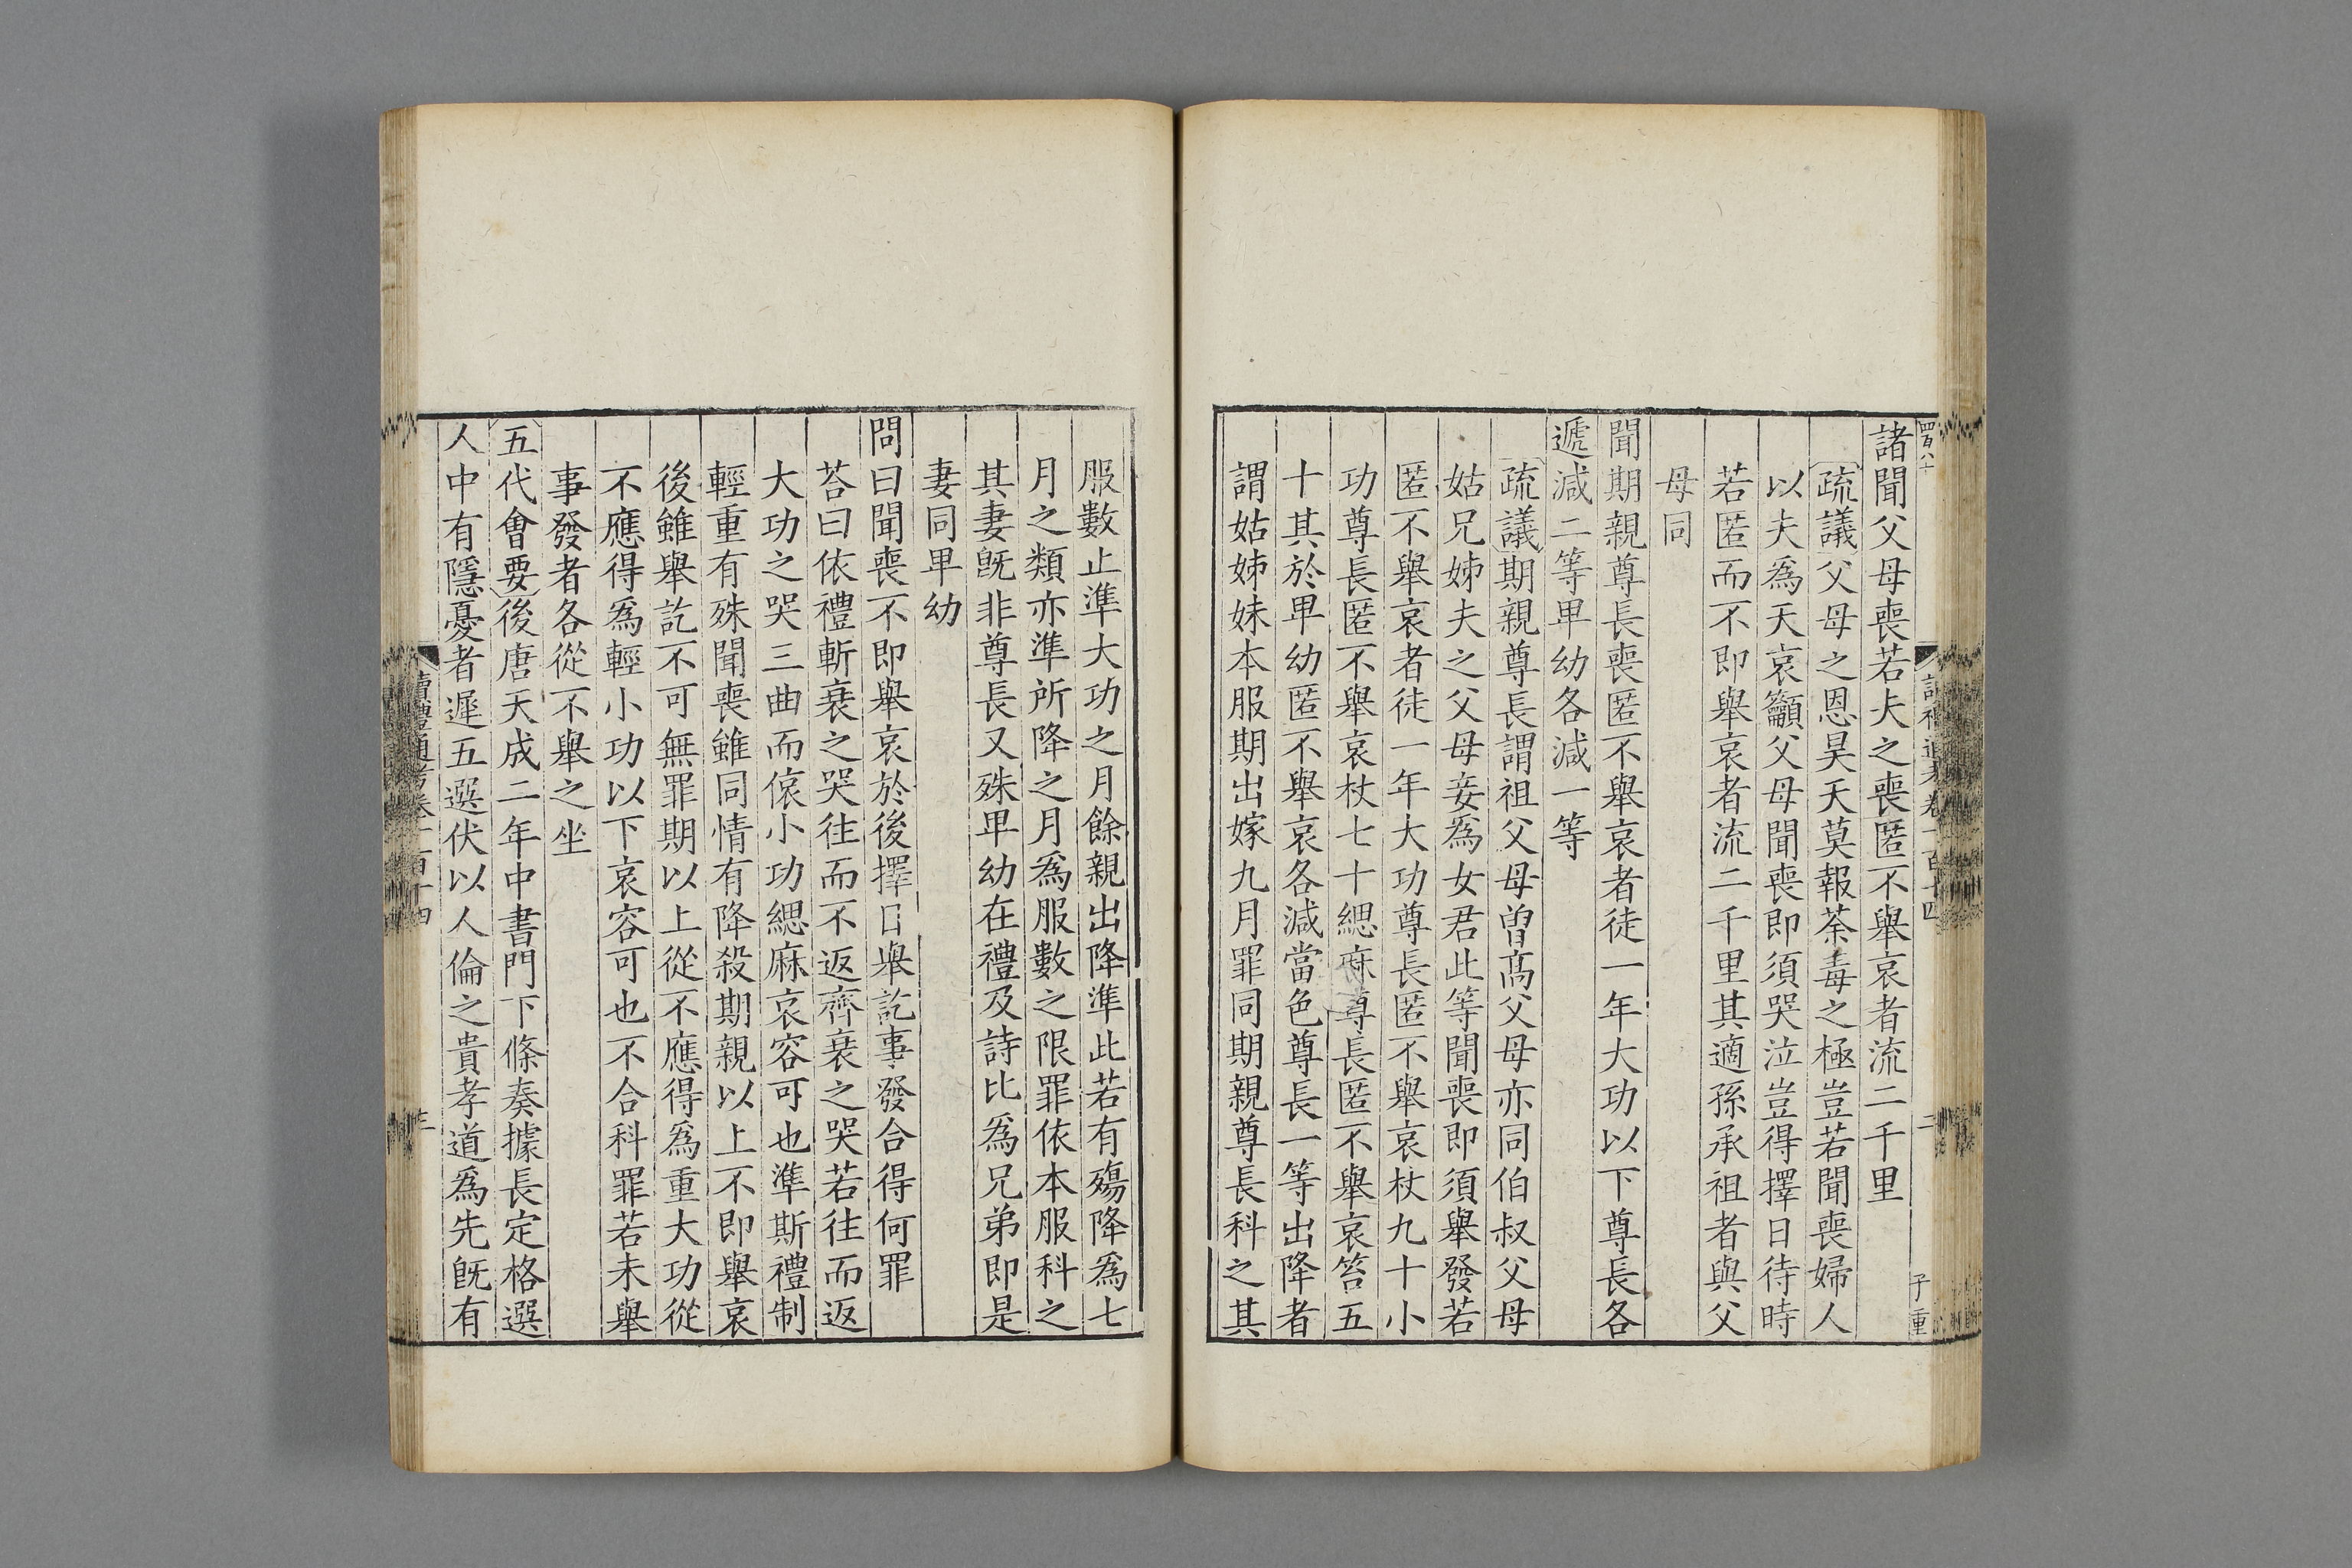 諸聞父母喪若夫之喪匿不舉哀者流二千里
疏議父母之恩昊天莫報荼毒之極豈若聞喪婦人
以夫爲天哀籲父母聞喪即須哭泣豈得擇日待時
若匿而不即舉哀者流二千里其適孫承祖者與父
母同
聞期親尊長喪匿不舉哀者徒一年大功以下尊長各
遞減二等卑幼各減一等
疏議期親尊長謂祖父母曾髙父母亦同伯叔父母
姑兄姊夫之父母妾爲女君此等聞喪即須舉發若
匿不舉哀者徒一年大功尊長匿不舉哀杖九十小
功尊長匿不舉哀杖七十緦麻尊長匿不舉哀笞五
十其於卑幼匿不舉哀各減當色尊長一等出降者
謂姑姊妹本服期出嫁九月罪同期親尊長科之其
服數止準大功之月餘親出降準此若有殤降爲七
月之類亦準所降之月爲服數之限罪依本服科之
其妻旣非尊長又殊卑幼在禮及詩比爲兄弟即是
妻同卑幼
問曰聞喪不即舉哀於後擇日舉訖事發合得何罪
荅曰依禮斬衰之哭往而不返齊衰之哭若往而返
大功之哭三曲而偯小功緦麻哀容可也準斯禮制
輕重有殊聞喪雖同情有降殺期親以上不即舉哀
後雖舉訖不可無罪期以上從不應得爲重大功從
不應得爲輕小功以下哀容可也不合科罪若未舉
事發者各從不舉之坐
五代會要後唐天成二年中書門下條奏據長定格選
人中有隱憂者遲五選伏以人倫之貴孝道爲先旣有
讀禮通考卷一百十四
三
二
子重
四百八十